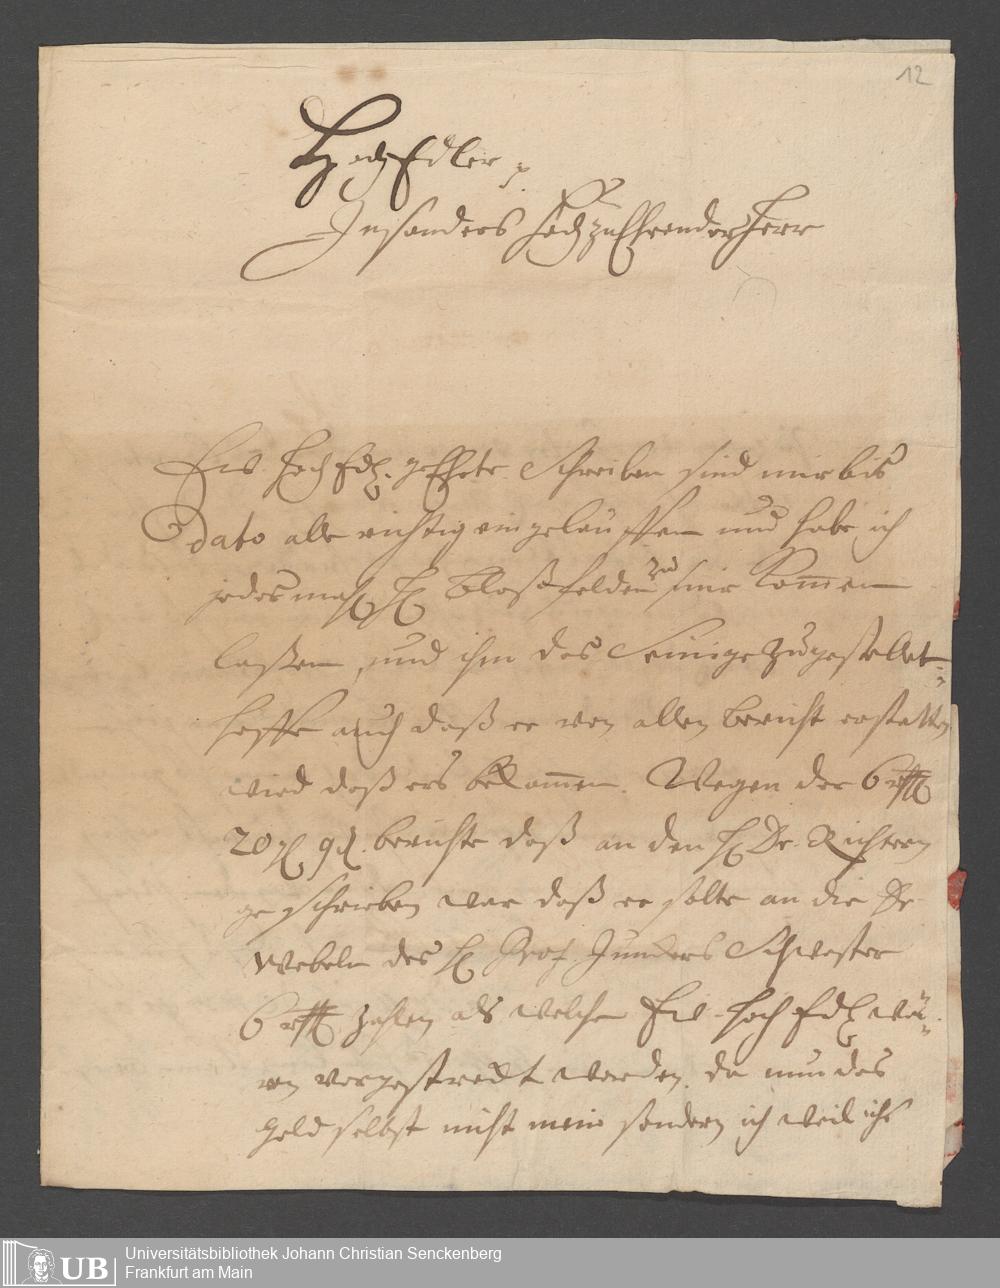 12
HochEdler p.
Insonders HochzuEhrender Herr
Ew. HochEdl. geEhrte Schreiben sind mir bis
dato alle richtig eingelauffen und habe ich
jedesmahl H. Bloßfelden zu mir kommen
laßen, und ihm das Seinige zugestellet
hoffe auch daß er von allen bericht erstatten
wird daß ers bekommen. Wegen der 6 rthl
20 gl. 9 d. berichte daß an den H. Dr. Richtern
geschrieben war daß er solte an die Fr.
Webeln des H. Prof. Junckers Schwester
6 rthl. zahlen als welche Ew. HochEdl wä-
ren vorgestreckt worden. da nun das
Geld selbst nicht mein sondern ich weil ichs
Universitätsbibliothek Johann Christian Senckenberg
Frankfurt am Main
UB